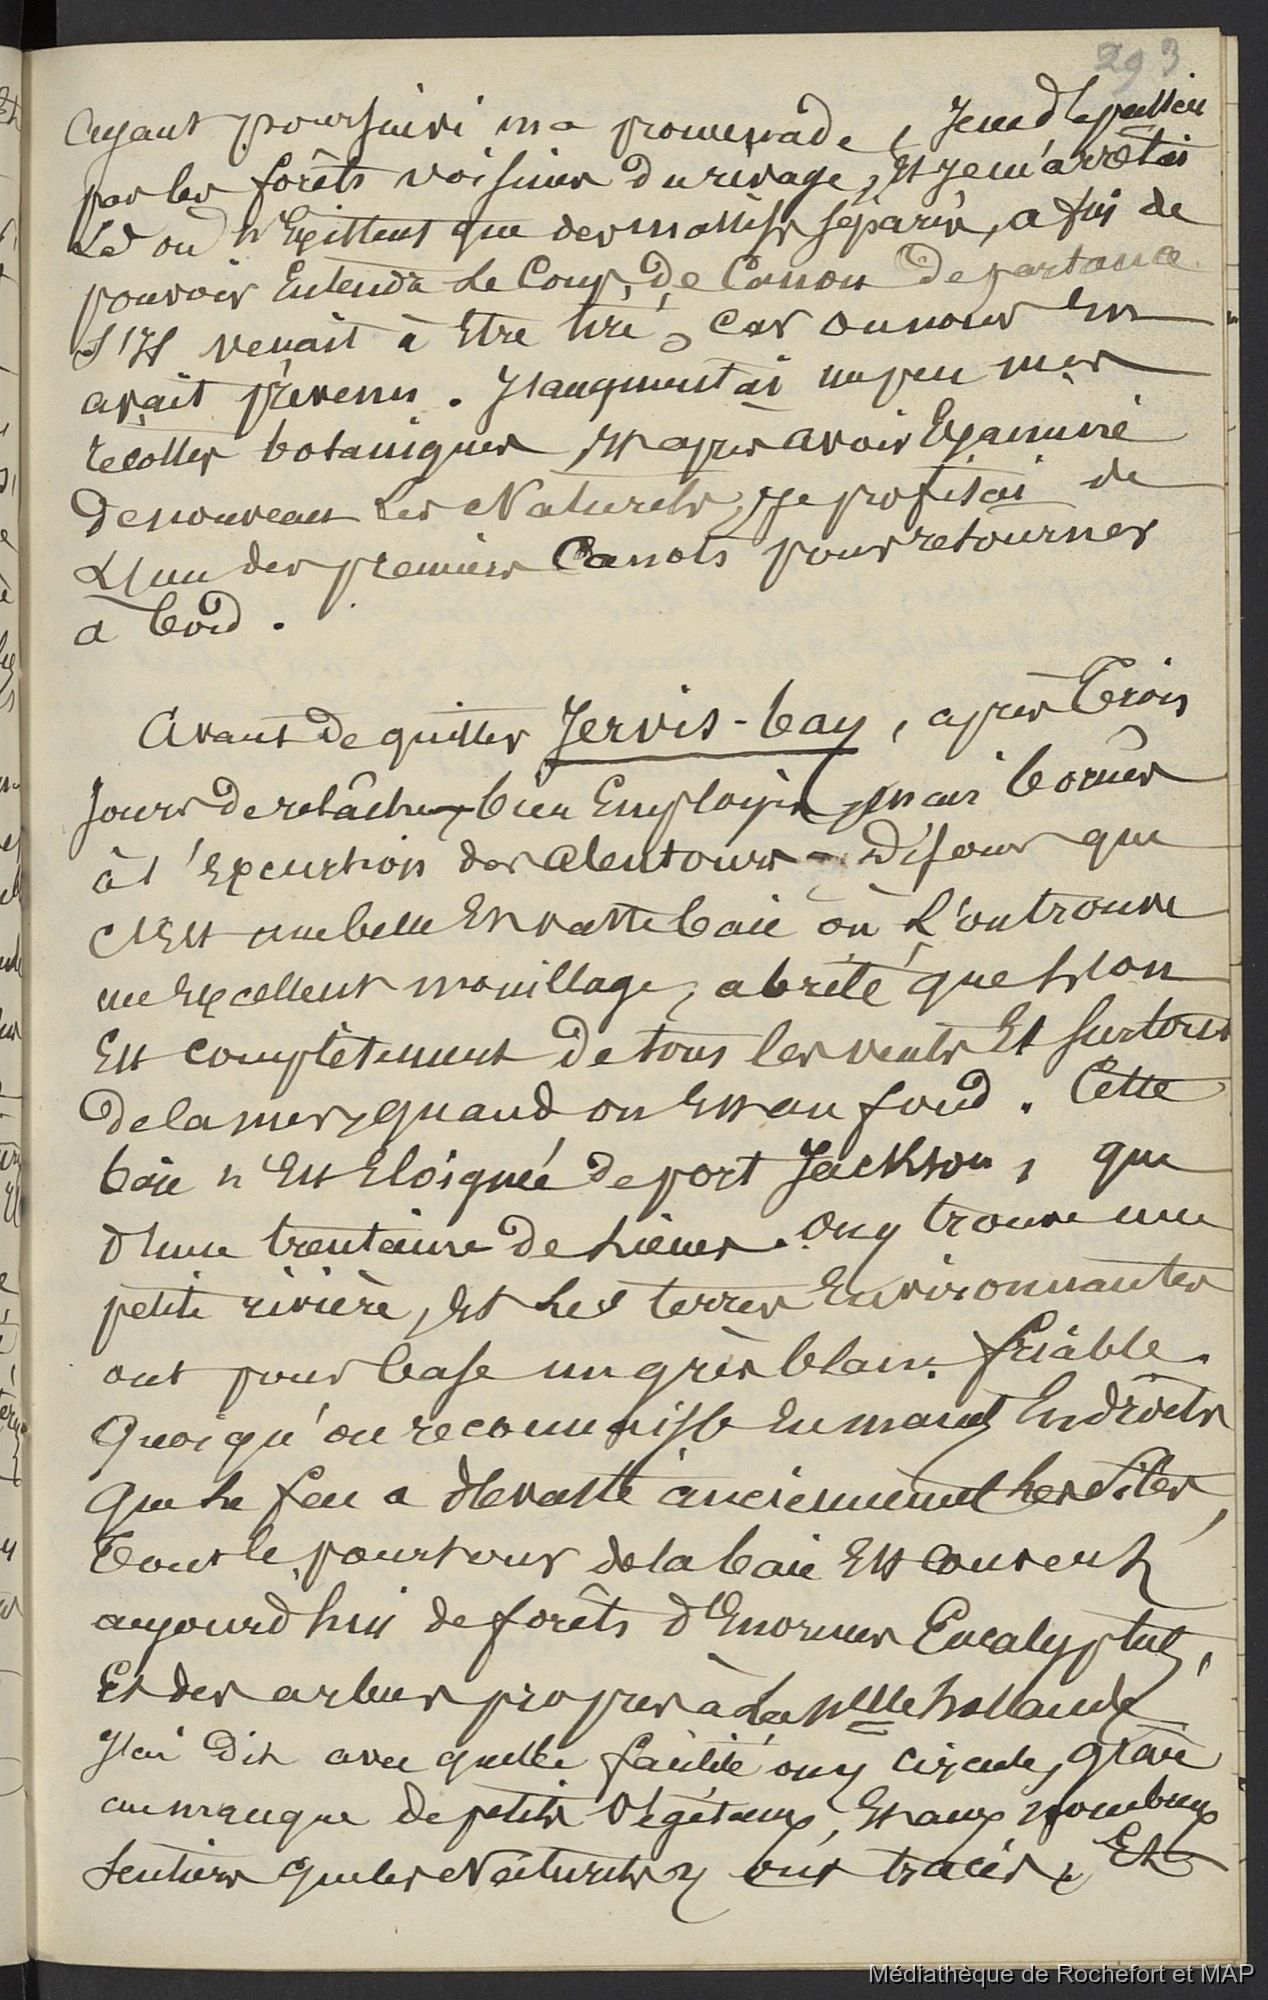 293
Ayant poursuivi ma promenade, Je me
par les forêts voisines du rivage, Et Je m'arrêtai
Là où n'Existent que des massifs séparés, afin de
pouvoir Entendre Le Coup, De Canon De partance
S'Il venait à Etre tiré, Car on nous En
avait prévenus. J'augmentai un peu mes
récoltes botaniques, Et après avoir Examiné
De nouveau Les Naturels, Je profitai de
L'un des premiers Canots pour retourner
à bord.
Avant De quitter Jervis-bay, après trois
Jours De relâche bien Employés, mais bornés
à l'Excursion des alentours, Disons que
C'Est une belle Et vaste baie où L'on trouve
un Excellent mouillage, abrité que L'on
Est complètement De tous les vents Et surtout
De la mer, quand on Est au fond. Cette
baie n'Est Eloignée De port Jackson, que
d'une trentaine De Lieues. On y trouve une
petite rivière, Et Les terres Environnantes
ont pour base un grès blanc friable.
Quoiqu'on reconnaisse En maints Endroits
Que Le feu a dévasté anciennement Les Sites,
Tout le pourtour de la baie Est Couvert
aujourd'hui de forêts d'Enormes Eucalyptus,
Et des arbres propres à La Nlle hollande
J'ai Dit avec quelle facilité on y circule, grâce
au manque De petits Végétaux, Et aux nombreux
Sentiers que les Naturels y ont tracés, Et
Médiathèque de Rochefort et MAP